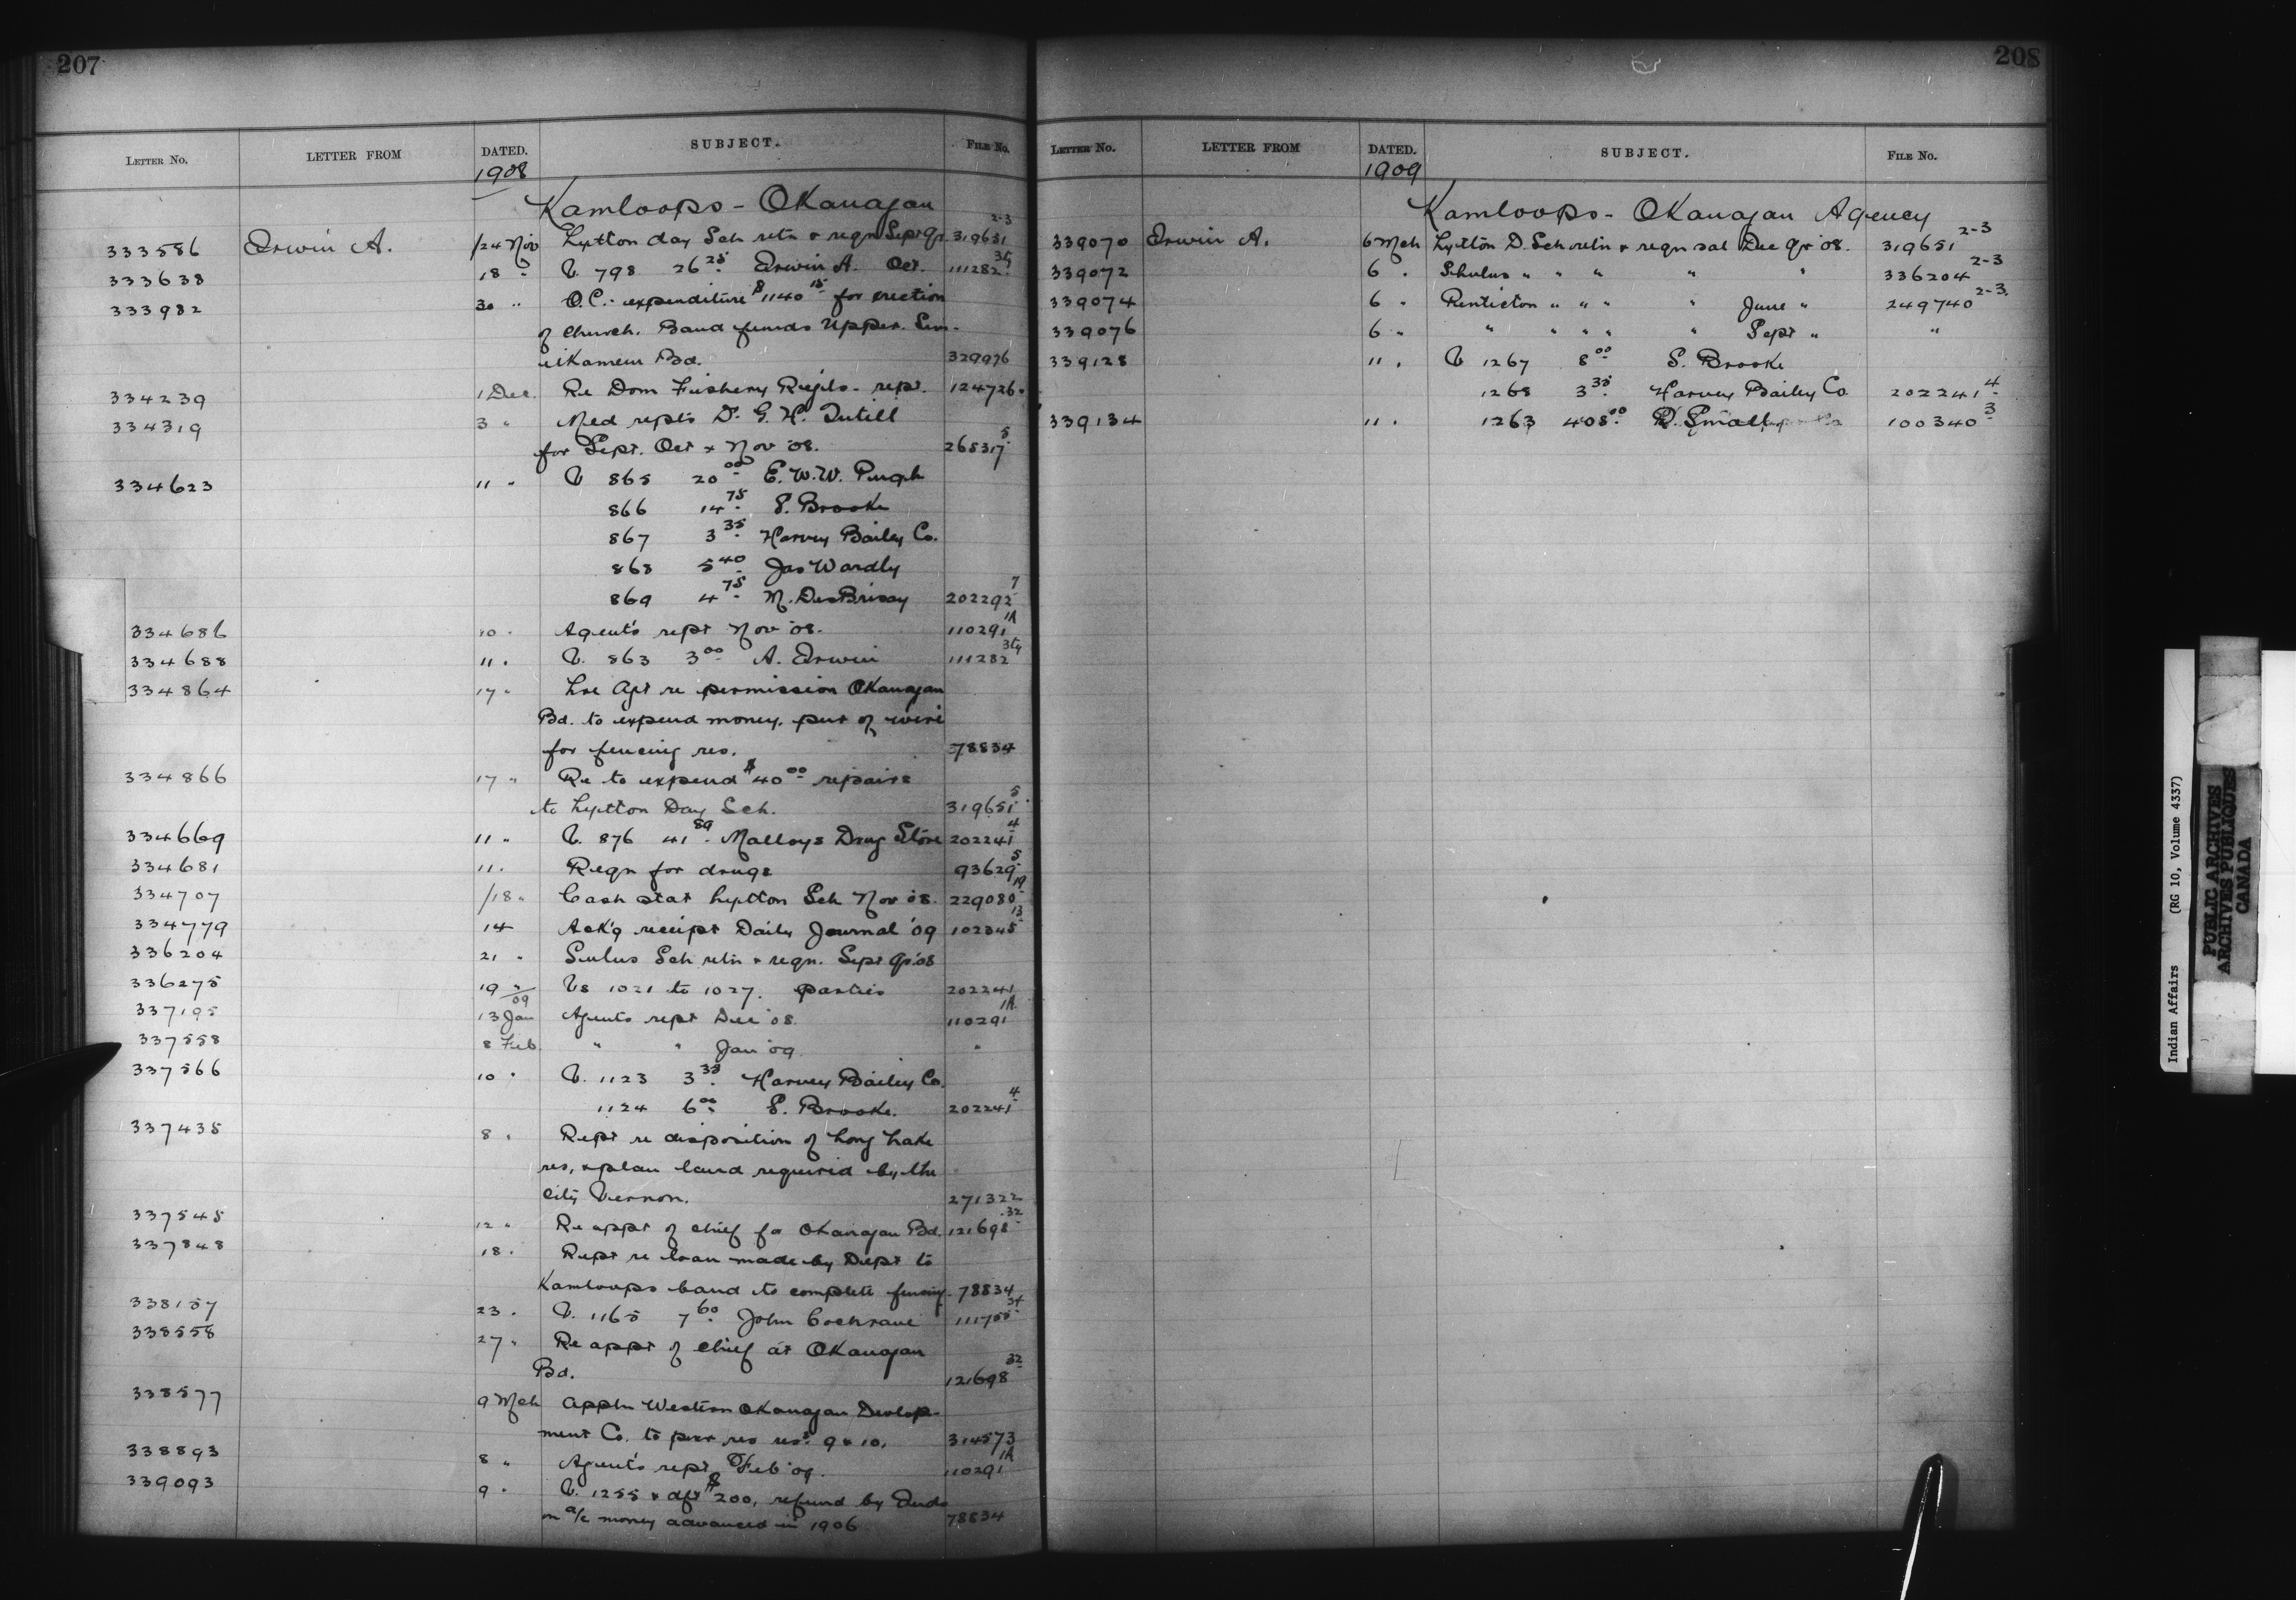 207
LETTER No. LETTER FROM DATED. SUBJECT. FILE No.
1908
Kamloops - Okanagan
333586 Erwin A. /24 Nov Lytton day Sch retn & reqn Sept Qr. 319651 2-3
333638 18 " V 798 26 25 Erwin A. Oct. 111282
333982 30 " O.C. - expenditure $1140 15 for erection
of Church. Band funds Upper Sim-
ilkameen Bd. 329976
334239 1 Dec. Re Dom Fishery Regls - rept. 124726
334319 3 " Med repts Dr. G. H. Tutill
for Sept. Oct & Nov '08. 265317 5
334623 11 " V 865 20 00 E. W. W. Pugh
866 14 75 S. Brooke
867 3 35 Harvey Bailey Co.
868 5 40 Jas Wardly
869 4 75 M. DesBrisay 202292 7
334686 10 " Agent's rept Nov '08. 110291 1A
334688 11 " V. 863 3 00 A. Erwin 111282
334864 17 " Lre Agt re permission Okanagan
Bd. to expend money, pur of wire
for fencing res. 78834
334866 17 " Re to expend $40 00 repairs
to Lytton Day Sch. 319651 5
334669 11 " V. 876 41 89 Malloys Drug Store 202241 4
334681 11 " Reqn for drugs 93629 5
334707 /18 " Cash stat Lytton Sch Nov '08. 229080 19
334779 14 Ack'g receipt Daily Journal '09 102345 13
336204 21 " Sulus Sch retn & reqn. Sept Qr '08
336275 19 " Vs 1021 to 1027. parties 202241
09
337195 13 Jan Agents rept Dec '08. 110291 1A
337558 8 Feb. " " Jan '09 "
337566 10 " V. 1123 3 35 Harvey Bailey Co.
1124 6 00 S. Brooke. 202241 4
337435 8 " Rept re disposition of Long Lake
res, & plan land required by the
City Vernon. 271322
337545 12 " Re appt of chief for Okanagan Bd. 121698 32
337848 18 " Rept re loan made by Dept to
Kamloops band to complete fencing. 78834
338157 23 " V. 1165 7 60 John Cochrane 111755 34
338558 27 " Re appt of chief at Okanagan
Bd. 121698 32
338577 9 Mch Appln Western Okanagan Develop-
ment Co. to pur res nos. 9 & 10. 314573
338893 8 " Agent's rept Feb '09. 110291 1A
339093 9 " V. 1255 & dft $200, refund by Inds
on a/c money advanced in 1906 78834
208
LETTER No. LETTER FROM DATED. SUBJECT. FILE No.
1909
Kamloops - Okanagan Agency
339070 Erwin A. 6 Mch Lytton D. Sch retn & reqn sal Dec Qr '08. 319651 2-3
339072 6 " Shulus " " " " " 336204 2-3
339074 6 " Penticton " " " " June " 249740 2-3
339076 6 " " " " " " Sept " "
339128 11 " V 1267 8 00 S. Brooke
1268 3 35 Harvey Bailey Co. 202241 4
339134 11 " 1263 408 00 R. Small 100340 3
Indian Affairs (RG 10, Volume 4337)
PUBLIC ARCHIVES
ARCHIVES PUBLIQUES
CANADA